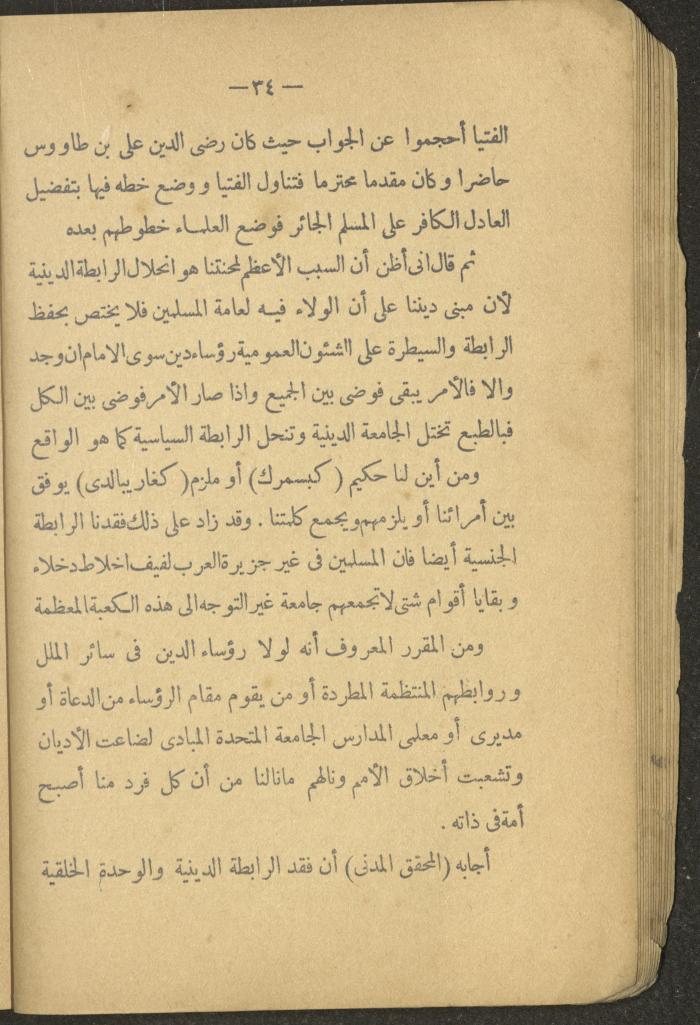 — ٣٤ —
الفتيا أحجموا عن الجواب حيث كان رضى الدين على بن طاووس
حاضرا وكان مقدما محترما فتناول الفتيا ووضع خطه فيها بتفضيل
العادل الكافر على المسلم الجائر فوضع العلماء خطوطهم بعده
ثم قال انى أظن أن السبب الأعظم لمحنتنا هو انحلال الرابطة الدينية
لأن مبنى ديننا على أن الولاء فيه لعامة المسلمين فلا يختص بحفظ
الرابطة والسيطرة على الشئون العمومية رؤساء دين سوى الامام ان وجد
والا فالأمر يبقى فوضى بين الجميع واذا صار الأمر فوضى بين الكل
فبالطبع تختل الجامعة الدينية وتنحل الرابطة السياسية كما هو الواقع
ومن أين لنا حكيم ( كبسمرك ) أو ملزم ( كغاريبالدى ) يوفق
بين أمرائنا أو يلزمهم ويجمع كلمتنا . وقد زاد على ذلك فقدنا الرابطة
الجنسية أيضا فان المسلمين فى غير جزيرة العرب لفيف اخلاط دخلاء
وبقايا أقوام شتى لا تجمعهم جامعة غير التوجه الى هذه الكعبة المعظمة
ومن المقرر المعروف أنه لولا رؤساء الدين فى سائر الملل
وروابطهم المنتظمة المطردة أو من يقوم مقام الرؤساء من الدعاة أو
مديرى أو معلمى المدارس الجامعة المتحدة المبادى لضاعت الأديان
وتشعبت أخلاق الأمم ونالهم مانالنا من أن كل فرد منا أصبح
أمة فى ذاته .
أجابه ( المحقق المدنى ) أن فقد الرابطة الدينية والوحدة الخلقية